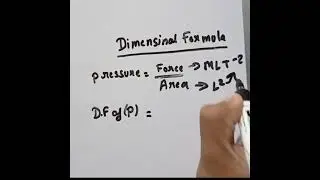 Dimensinal Formula
Pressure = Force → MLT⁻²
Area → L²
D.F of (P) =